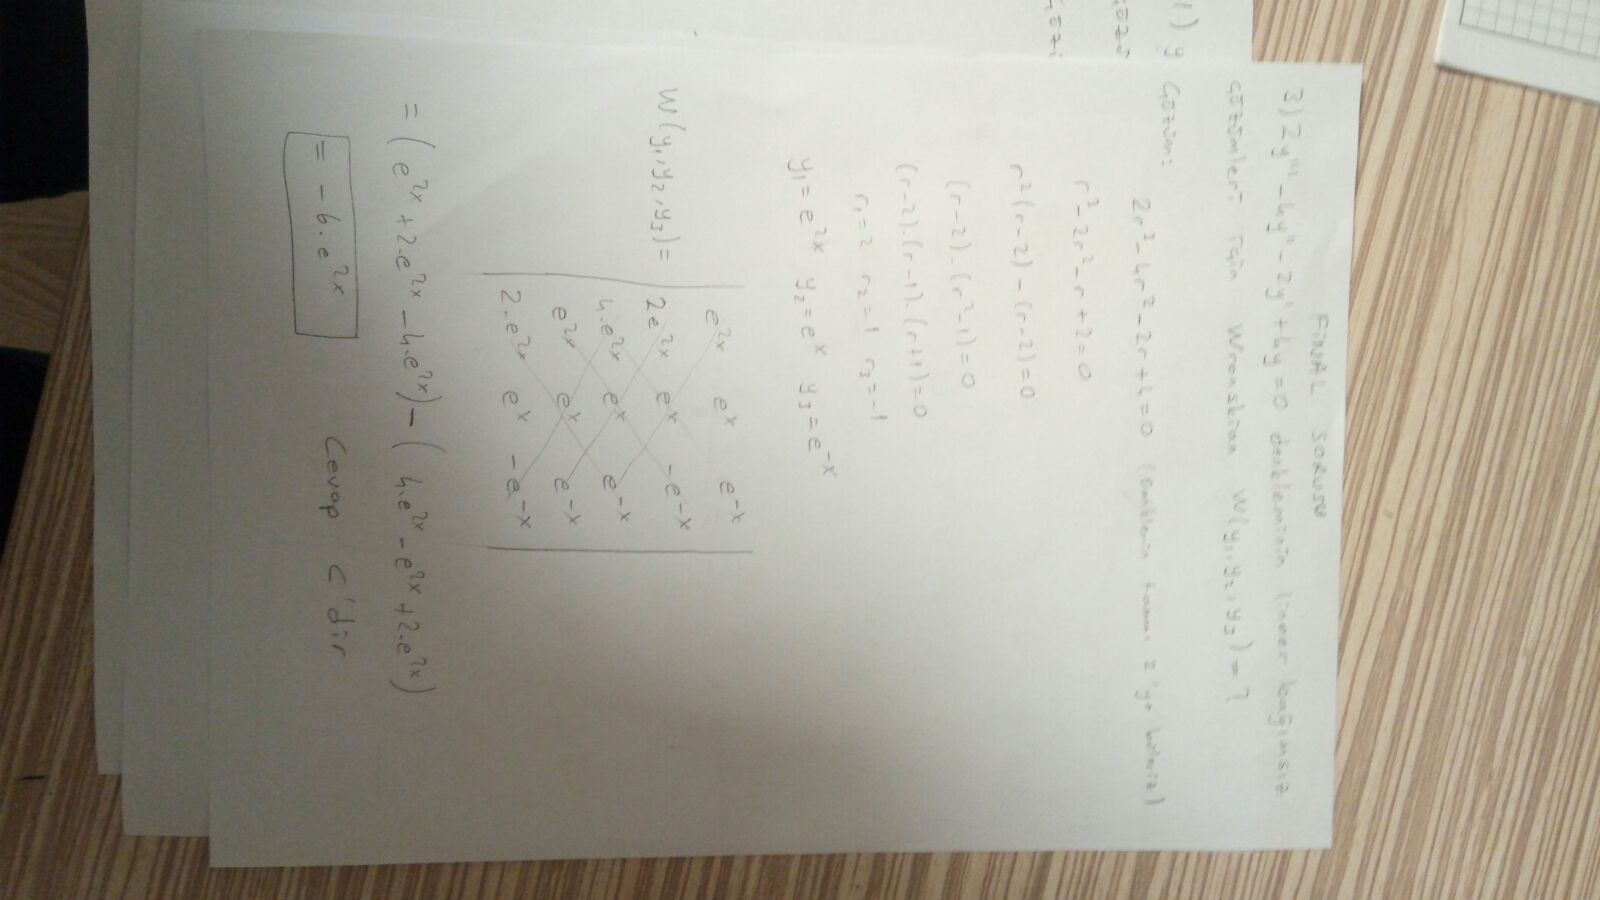 FİNAL SORUSU
3) 2y''' - 4y'' - 2y' + 4y = 0 denkleminin lineer bağımsız
çözümleri için Wronskian W(y₁, y₂, y₃) = ?
1) y
Çözüm:
2r³ - 4r² - 2r + 4 = 0 (Denklemin tamamı 2'ye böleriz)
çözü
r³ - 2r² - r + 2 = 0
çözü
r²(r-2) - (r-2) = 0
(r-2).(r²-1) = 0
(r-2).(r-1).(r+1) = 0
r₁ = 2 r₂ = 1 r₃ = -1
y₁ = e²ˣ y₂ = eˣ y₃ = e⁻ˣ
e²ˣ eˣ e⁻ˣ
W(y₁, y₂, y₃) = 2e²ˣ eˣ -e⁻ˣ
4.e²ˣ eˣ e⁻ˣ
e²ˣ eˣ e⁻ˣ
2.e²ˣ eˣ -e⁻ˣ
= (e²ˣ + 2.e²ˣ - 4.e²ˣ) - (4.e²ˣ - e²ˣ + 2.e²ˣ)
= -6.e²ˣ Cevap C'dir